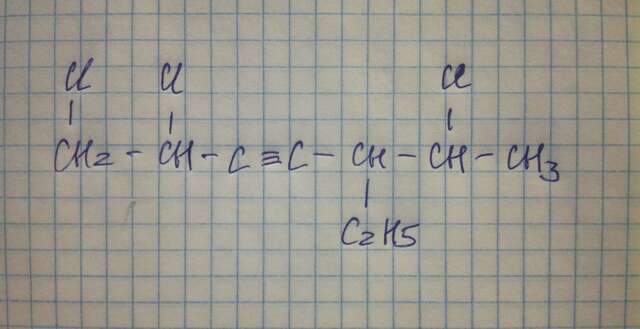 Cl Cl Cl
CH2 - CH - C ≡ C - CH - CH - CH3
C2H5